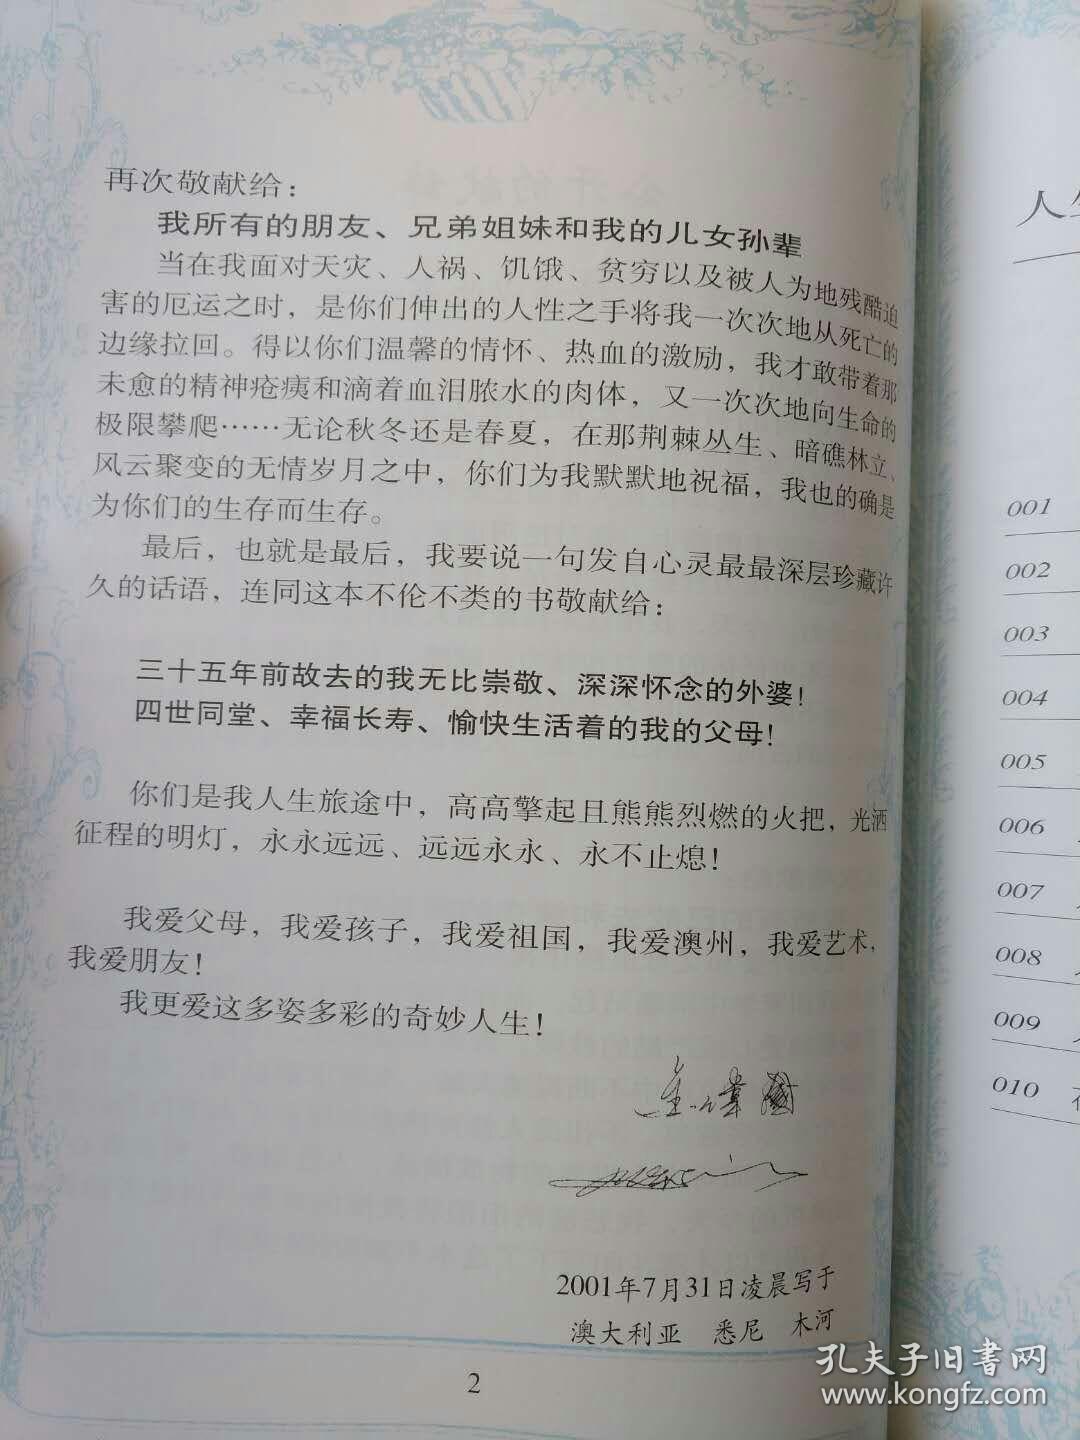 再次敬献给：
我所有的朋友、兄弟姐妹和我的儿女孙辈
当在我面对天灾、人祸、饥饿、贫穷以及被人为地残酷迫
害的厄运之时，是你们伸出的人性之手将我一次次地从死亡的
边缘拉回。得以你们温馨的情怀、热血的激励，我才敢带着那
未愈的精神疮痍和滴着血泪脓水的肉体，又一次次地向生命的
极限攀爬……无论秋冬还是春夏，在那荆棘丛生、暗礁林立、
风云聚变的无情岁月之中，你们为我默默地祝福，我也的确是
为你们的生存而生存。
最后，也就是最后，我要说一句发自心灵最最深层珍藏许
久的话语，连同这本不伦不类的书敬献给：
三十五年前故去的我无比崇敬、深深怀念的外婆！
四世同堂、幸福长寿、愉快生活着的我的父母！
你们是我人生旅途中，高高擎起且熊熊烈燃的火把，光洒
征程的明灯，永永远远、远远永永、永不止熄！
我爱父母，我爱孩子，我爱祖国，我爱澳州，我爱艺术，
我爱朋友！
我更爱这多姿多彩的奇妙人生！
2001年7月31日凌晨写于
澳大利亚 悉尼 木河
2
人
001
002
003
004
005
006
007
008
009
010
孔夫子旧書网
www.kongfz.com